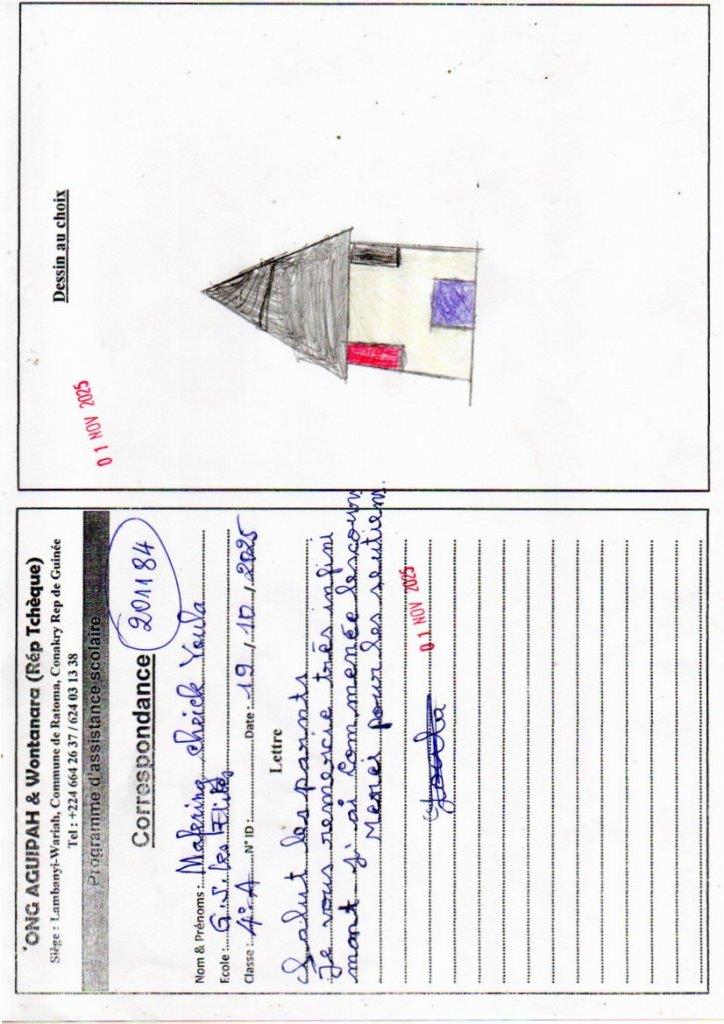 'ONG AGUIPAH & Wontanara (Rép Tchèque)
Siège : Lambanyi-Wariah, Commune de Ratoma, Conakry Rep de Guinée
Tel : +224 664 26 37 / 624 03 13 38
Programme d'assistance scolaire
Correspondance 201184
Nom & Prénoms : Mafering cheick Youla
Ecole : G.S. les Elites
Classe : 4° A N° ID : Date : 19 / 10 / 2025
Lettre
Salut les parants
Je vous remercie très infini
mant j'ai Commencé les cours
Merci pour les soutiens.
Youla
01 NOV 2025
01 NOV 2025
Dessin au choix